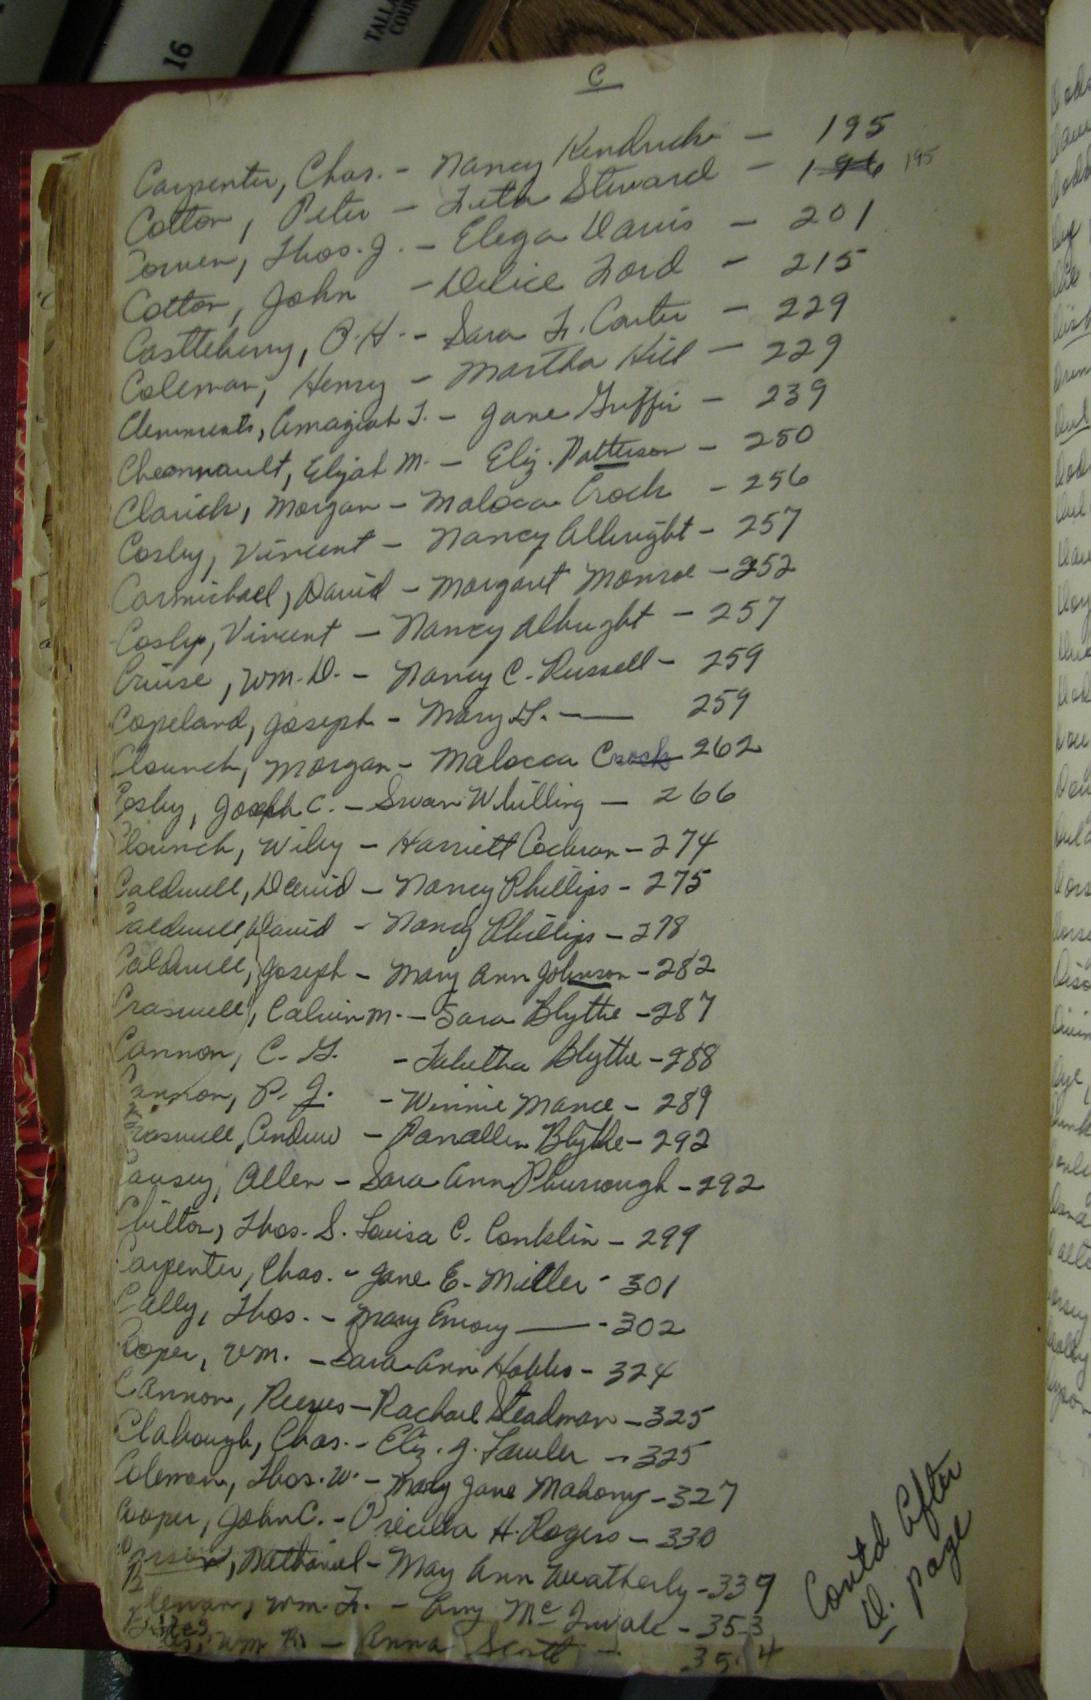 16
TALLA
COU
C
Carpenter, Chas. - Nancy Kendrick - 195
Cotton, Peter - Leta Steward - 196 195
Thos. J. - Elega Davis - 201
Cotton, John - Delice Lord - 215
Castleberry, P. H. - Sara F. Carter - 229
Coleman, Henry - Martha Hill - 229
Clemments, Amaziah T. - Jane Griffin - 239
Cheannault, Elijah M. - Eliz. Patterson - 250
Morgan - Malocca Crock - 256
Cosby, Vincent - Nancy Albright - 257
Carmichael, David - Margaret Monroe - 252
Cosby, Vincent - Nancy Albright - 257
Cruise, Wm. D. - Nancy C. Russell - 259
Copeland, Joseph - Mary G. — 259
Clounch, Morgan - Malocca Crock 262
Cosby, Joseph C. - Susan Whilling - 266
Clounch, Wiley - Harriett Cochran - 274
Caldwell, David - Nancy Phillips - 275
Caldwell, David - Nancy Phillips - 278
Caldwell, Joseph - Mary Ann Johnson - 282
Craswell, Calvin M. - Sara Blythe - 287
Cannon, C. G. - Tabetha Blythe - 288
Cannon, P. J. - Winnie Mance - 289
Craswell, Andrew - Panallen Blythe - 292
Causey, Allen - Sara Ann - 292
Chilton, Thos. S. Louisa C. Conklin - 299
Carpenter, Chas. - Jane E. Miller - 301
Cally, Thos. - Mary Emory — - 302
Cooper, Wm. - Sara Ann Hobbs - 324
Cannon, Reeves - Rachael Steadman - 325
Clabough, Chas. - Eliz. J. Lawler - 325
Coleman, Thos. W. - Mary Jane Mahony - 327
Cooper, John C. - Pricilla H. Rogers - 330
Nathaniel - May Ann Weatherly - 339
Wm. F. - Amy - 353
Wm R. - Anna Scott - 354
Contd After
D. page